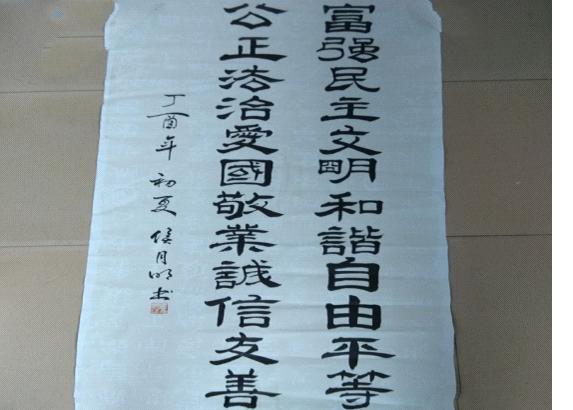 富强民主文明和諧自由平等
公正法治愛國敬業誠信友善
丁酉年初夏侯月明书